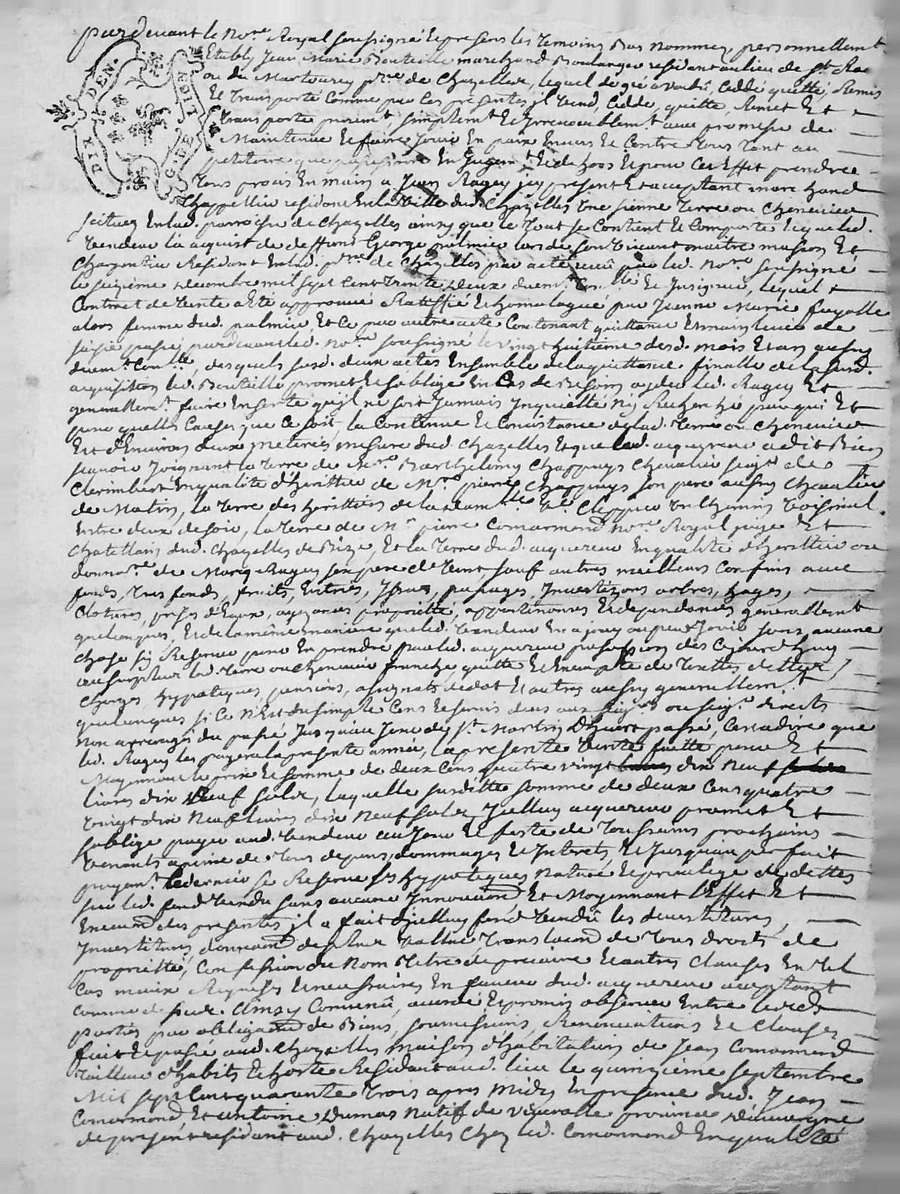 pardevant le no.re Royal soussigné et presens les temoins bas nommez personnellemt
Etably Jean Marie Bouteille marchand Boulanger residant au lieu de st. Roc
ou du Martourey prsse de Chazelles, lequel de gré a vendu, Ceddé quitté, Remis
Et transporté comme par ces presentes il vend, Cedde, quitte, Remet Et
transporte purement simplement Et irrevocablemt avec promesse de
Maintenir Et faire jouir En paix Envers Et Contre tous tant au
petitoire que possessoire En jugemt Et dehors Et pour Cet Effet prendre
tous procès En main a Jean Ragey icy present Et acceptant marchand
Chappellier residant En la Ville dud. Chazelles Une sienne terre ou Cheneviere
scituez En lad. parroisse de Chazelles ainsy que le tout se Contient Et Comporte Et que led.
Vendeur la acquist de deffunt George palmier lors de son vivant maitre masson Et
Charpentier Residant En lad. prsse de Chazelles par acte receu par led. no.re soussigné
le seizieme decembre mil sept Cent trente deux duemt Con.llé Et insignué, lequel
Contract de Vente a Eté approuvé Ratiffié Et homologué par Jeanne Marie fayolle
alors femme dud. palmier, Et ce par autre acte Contenant quittance Et mainlevée de
saisie passé pardevant led. no.re soussigné le vingt huitieme desd. mois Et an aussy
duemt Con.llé, desquels susd. deux actes Ensemble de la quittance finalle de la susd.
acquisition led. Bouteille promet Et soblige En Cas de Besoin ayder led. Ragey Et
generallemt faire En sorte qu'il ne soit Jamais Inquietté Ny Recherché par qui Et
pour quelles Causes que Ce soit. la Contenue Et Consistance de lad. terre ou Cheneviere
Est d'Environ deux meterées mesure dud. Chazelles Et que led. acquereur a dit Bien
scavoir Joignant la terre de Mre Barthelemy Chappuys Chevalier seigr de
Clerimbert En qualité d'heritier de Mre pierre Chappuys son pere aussy Chevalier
de Matin, la terre des heritiers de la dam.lle de Cleppier Un Chemin Voisinal
Entre deux de soir, la terre de Mr. pierre Comarmond no.re Royal juge Et
Chatellain dud. Chazelles de Bize, Et la terre dud. acquereur En qualité d'heritier ou
donn.re de Marcq Ragey son pere de Vent sauf autres meilleurs Confins avec
fonds, tres fonds, fruits, Entrées, Issues, passages, Investizons arbres, hayes,
Clotures, prises d'Eaux, ayzances, proprietté, appartenances Et dependances generallemt
quelconques, Et de la même maniere que led. Vendeur En a joui ou peu Jouir sans aucune
chose s'y Reserver pour En prendre par led. acquereur possession des aujourd'huy
au surplus lad. terre ou Cheneviere franche, quitte Et Exempte de toutes dettes
Charges, hypoteques, pensions, assignats de dot Et autres aussy generallemt
quelconques si Ce N'Est du simple Cens Et servis deus aux seigrs ou seigr directs
Non arreragé du passé Jusqua au Jour de st. Martin d'hyver passé, Cestadire que
led. Ragey les payera la presente année, la presente Vente faitte pour Et
Moyennant le prix Et somme de deux Cens quatre vingt dix Neuf
livres dix Neuf sols, laquelle susditte somme de deux Cens quatre
Vingt dix Neuf livres dix Neuf sols, Icelluy acquereur promet Et
soblige payer aud. Vendeur au Jour Et feste de Toussaints prochains
Venants a peine de tous depens, dommages Et Interets, Et Jusqua au parfait
payemt. se Reserve ses hypoteques Nature Et privilege desdettes
sur led. fond Vendu sans aucune Innovaon Et Moyennant l'Effet Et
Execuon des presentes il a fait dicelluy fond Vendu les devestitures,
Investitures, donnaon de plus vallue translaon de tous droits de
proprietté, Confession du Nom Et titre de precaire Et autres Clauses En tel
Cas maix Requises Et necessaires En faveur dud. acquereur acceptant
comme dessus. ainsy Convenu, accordé Et promis observer Entre lesd.
parties par obligaon de Biens, soumissions, Renonciations Et Clauses
fait Et passé aud. Chazelles maison d'habitation de Jean Comarmond
tailleur d'habits Et hoste Residant aud. lieu le quinzieme septembre
Mil sept Cent quarante trois apres Midy En presence dud. Jean
Comarmond Et antoine Dumas Natif de province d'auvergne
de present residant aud. Chazelles Chez led. Comarmond En qualité
DIX DEN.
G. DE LION